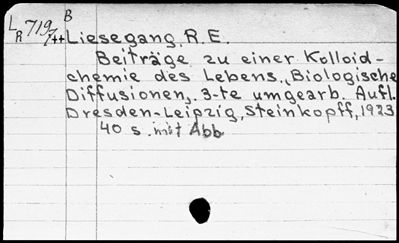 B
LR 719/44 Liesegang, R.E.
Beiträge zu einer Kolloid-
chemie des Lebens. (Biologische
Diffusionen). 3-te umgearb. Aufl.
Dresden-Leipzig, Steinkopff, 1923
40 s. mit Abb.